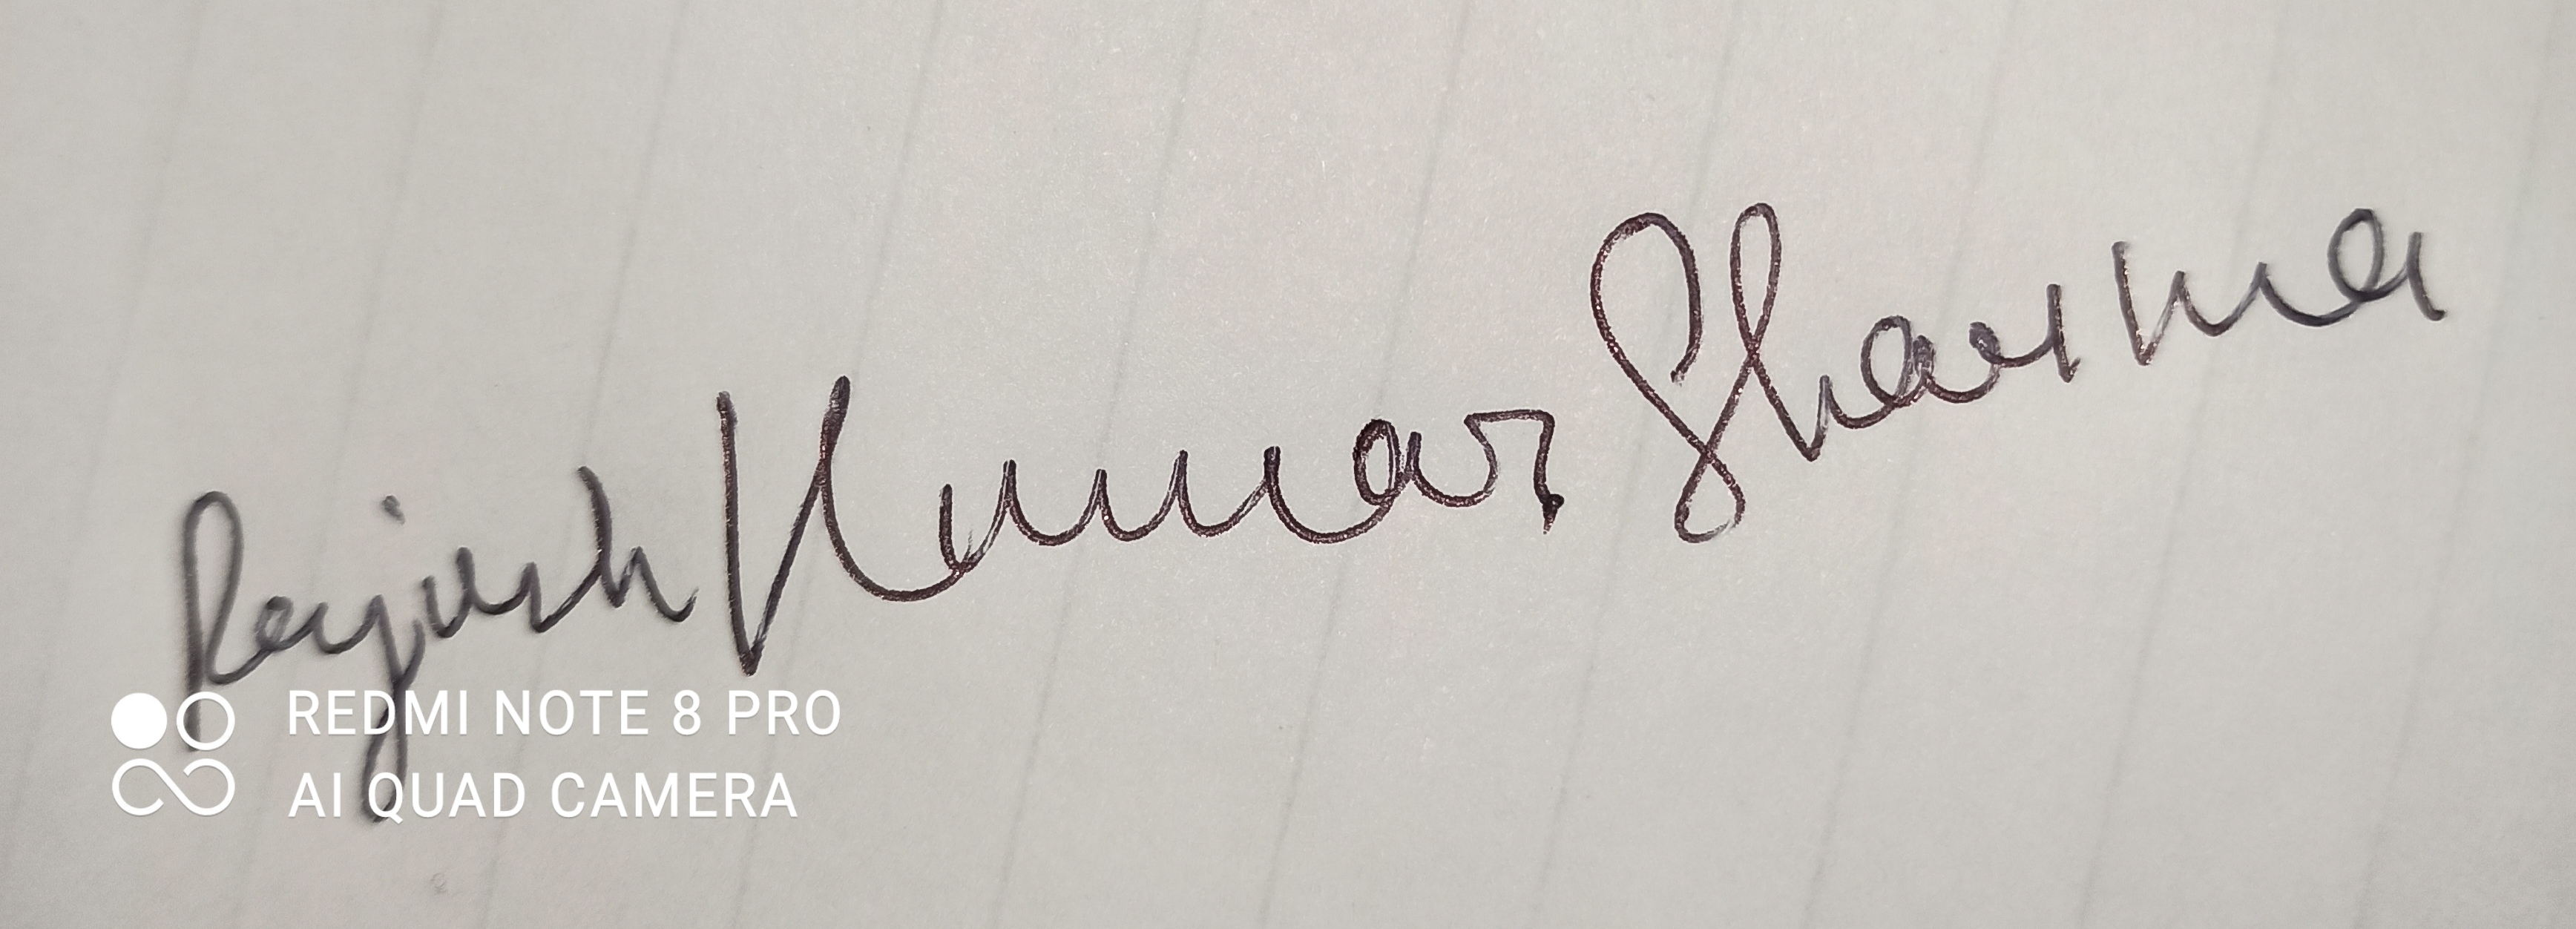 Rajesh Kumar Sharma
REDMI NOTE 8 PRO
AI QUAD CAMERA